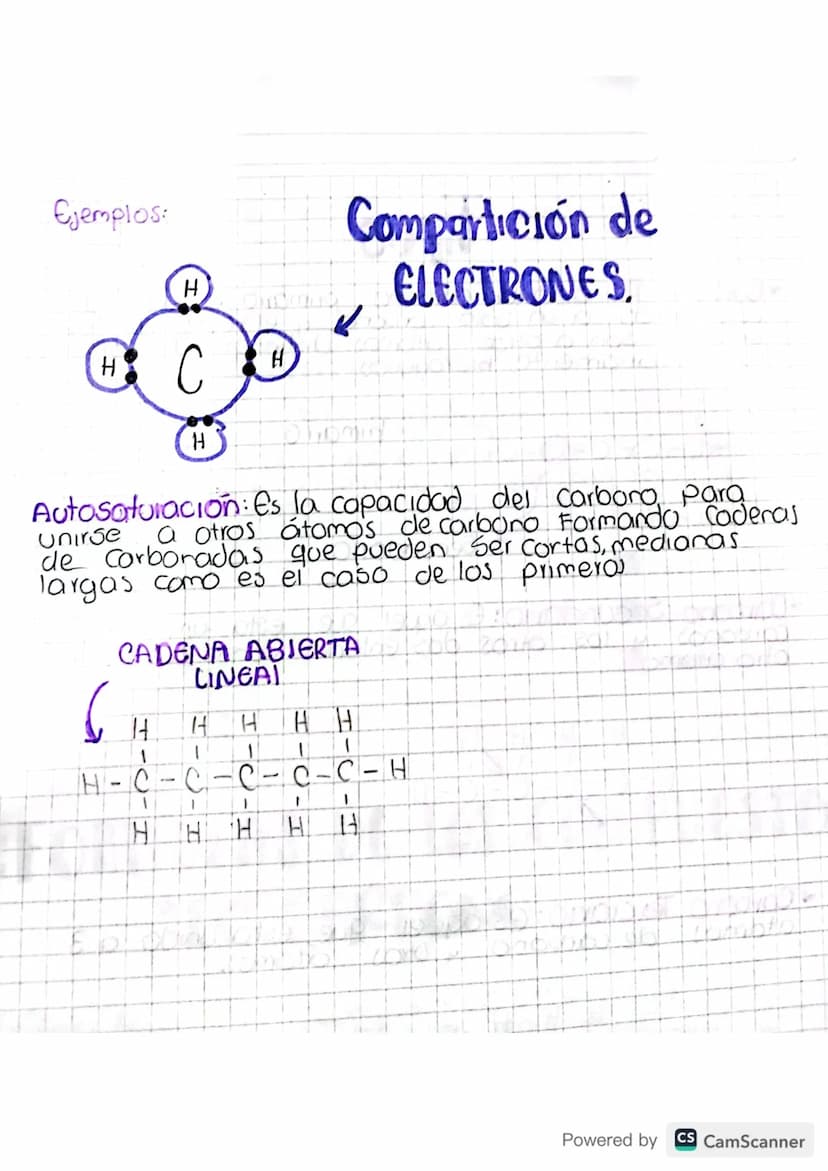 Ejemplos:
Compartición de
ELECTRONES.
H
H C H
H
Autosaturación: Es la capacidad del carbono para
unirse a otros átomos de carbono Formando Caderas
de Carboradas que pueden ser cortas, medianas
largas como es el caso de los primeros
CADENA ABIERTA
LINEAl
H H H H H
H - C - C - C - C - C - H
H H H H H
Powered by CS CamScanner